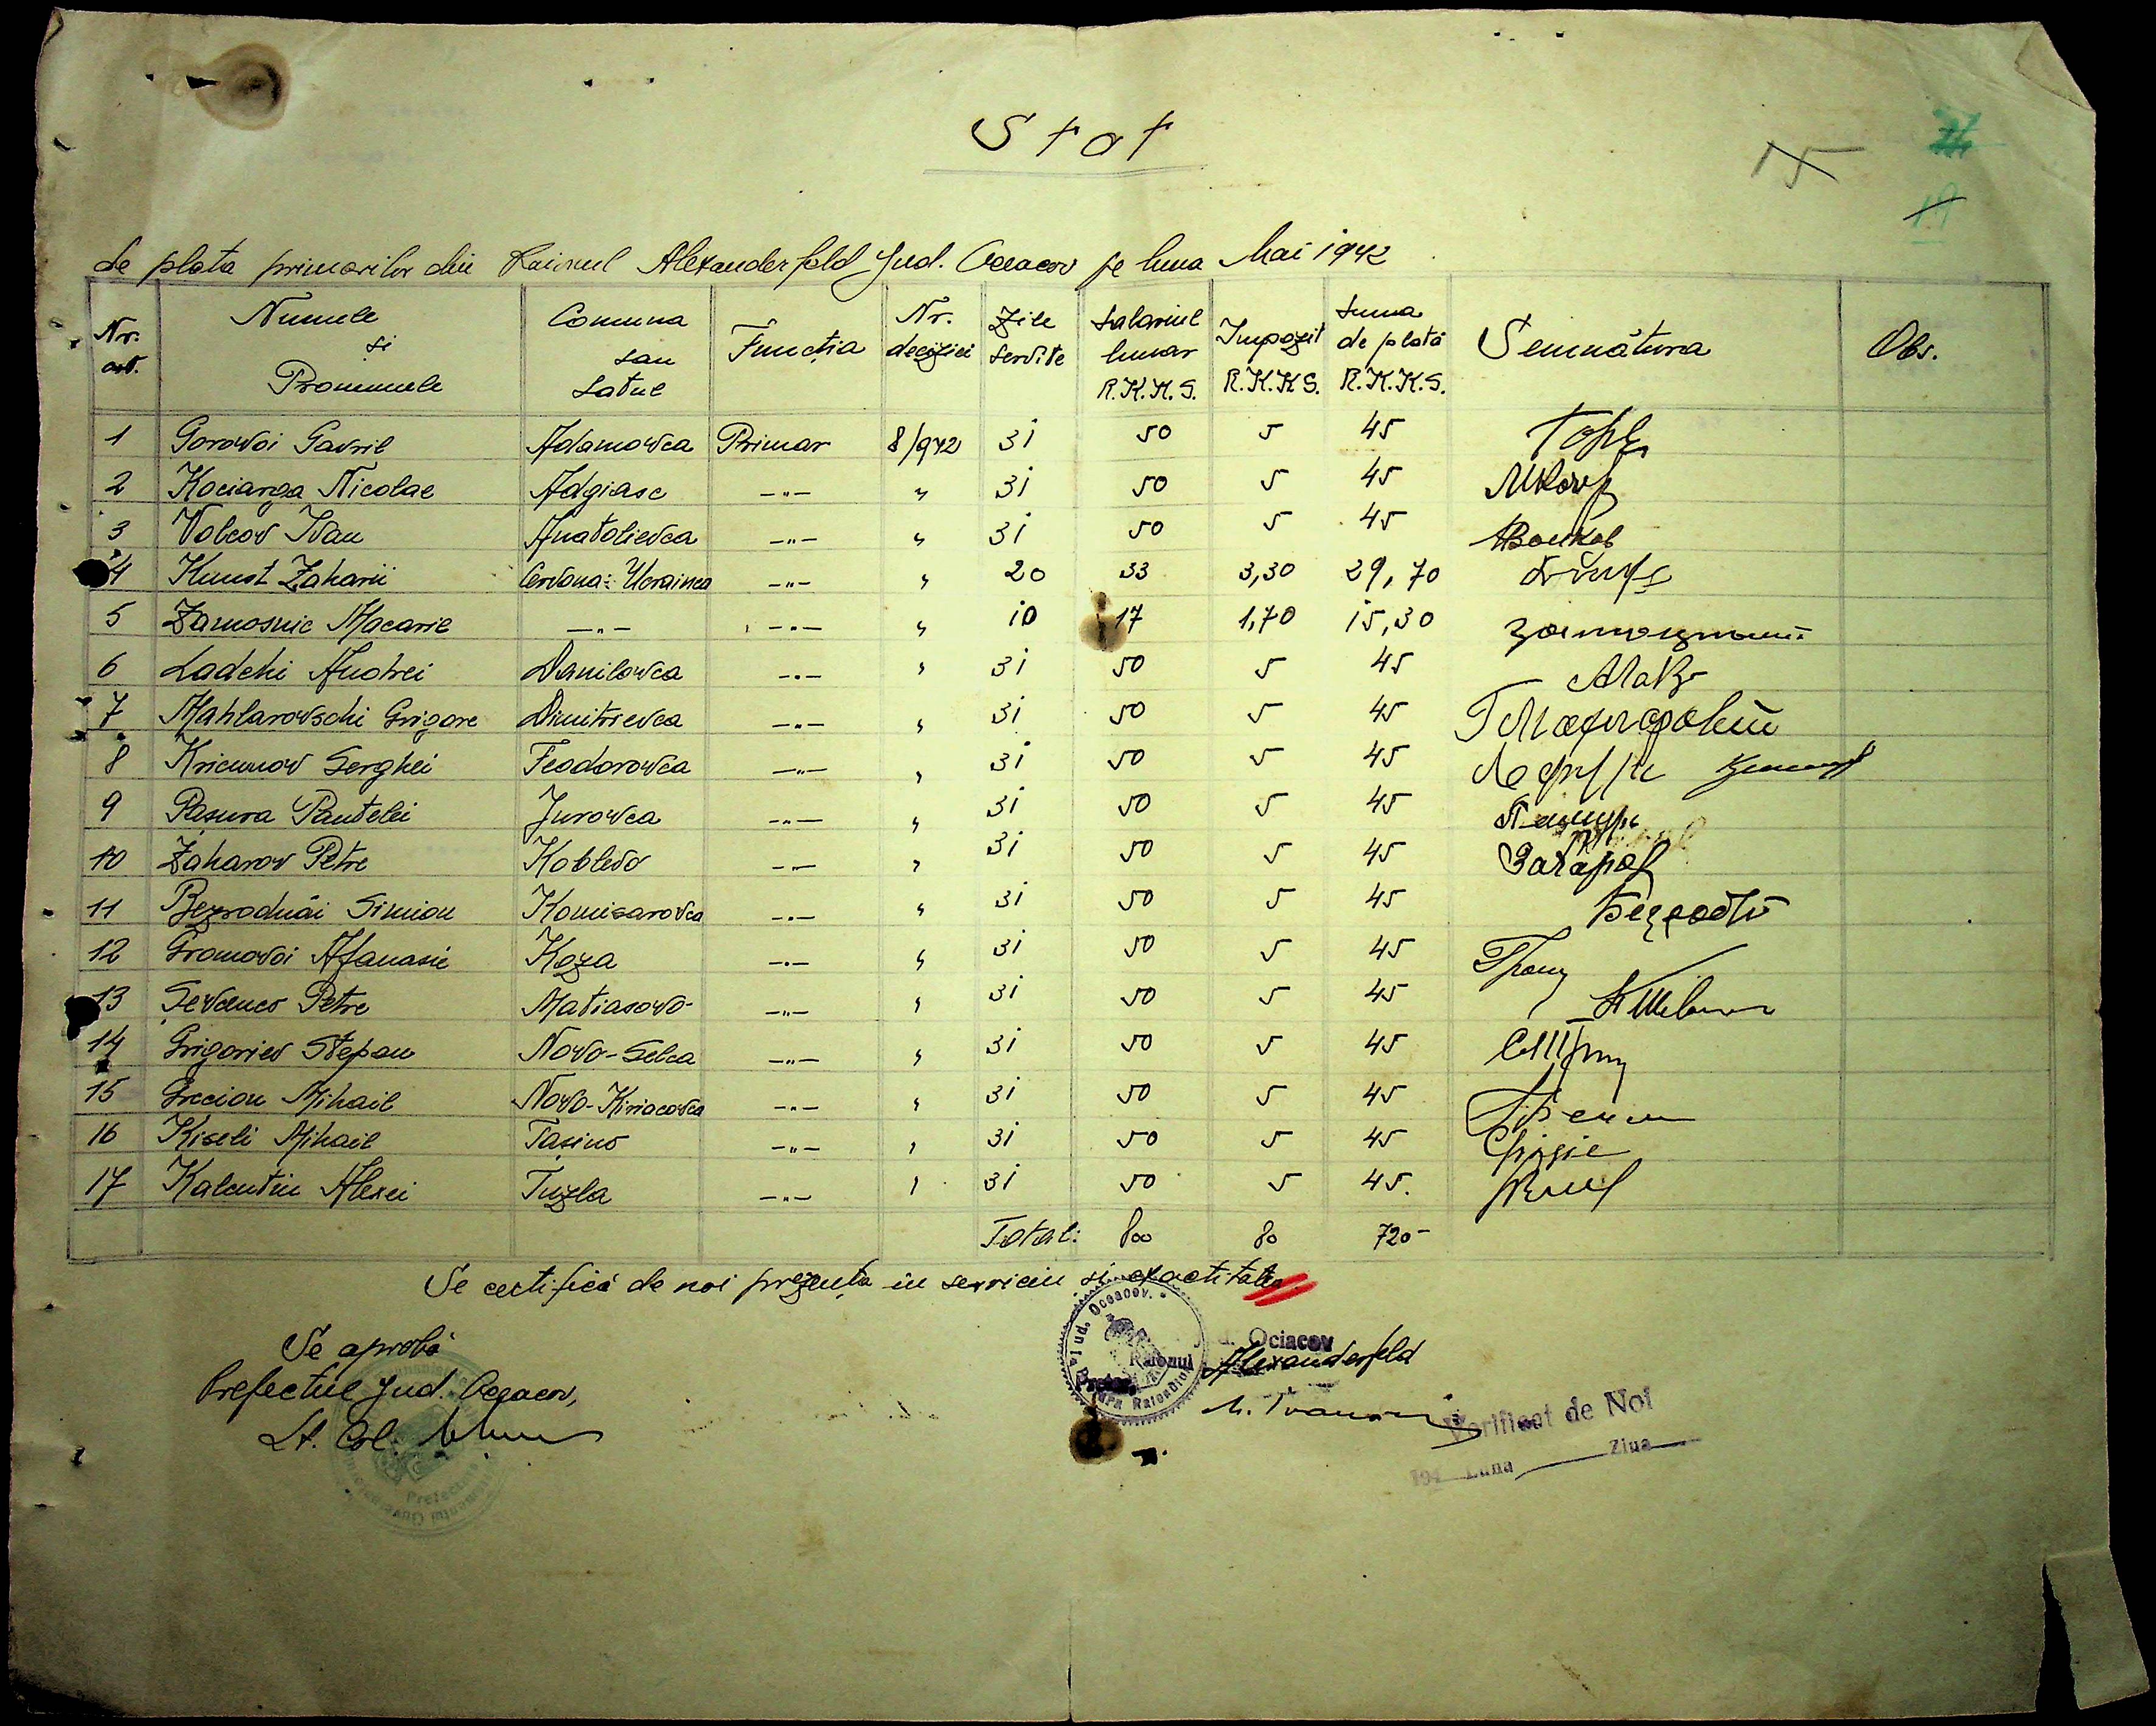 Stat
15
de plata primarilor din Raionul Alexanderfeld Jud. Oceacov pe luna Mai 1942
Nr. crt. Numele și Pronumele Comuna sau Satul Funcția Nr. deciziei Zile servite Salariul lunar R.K.K.S. Impozit R.K.K.S. Suma de plată R.K.K.S. Semnătura Obs.
1 Gorowoi Gavril Adamowca Primar 8/942 31 50 5 45
2 Kocianga Nicolae Adgiasc —"— " 31 50 5 45
3 Volcov Ivan Anatolievca —"— " 31 50 5 45 Волков
4 Kunst Zaharii Cervona-Ucrainca —"— " 20 33 3,30 29,70
5 Zamosnic Macarie —"— —"— " 10 17 1,70 15,30
6 Ladchi Andrei Danilowca —"— " 31 50 5 45
7 Mahlarovschi Grigore Dimitrievca —"— " 31 50 5 45
8 Kricunov Serghei Feodorowca —"— " 31 50 5 45
9 Pașura Pantelei Jurowca —"— " 31 50 5 45
10 Zaharov Petre Koblevo —"— " 31 50 5 45 Захаров
11 Bezrodnâi Simion Komisarovca —"— " 31 50 5 45
12 Gromovoi Afanasie Koza —"— " 31 50 5 45
13 Șevcenco Petre Matiasovo —"— " 31 50 5 45
14 Grigoriev Stepan Novo-Selca —"— " 31 50 5 45
15 Grecion Mihail Novo-Kiriacovca —"— " 31 50 5 45
16 Kiseli Mihail Tașino —"— " 31 50 5 45
17 Kalentin Alexei Tuzla —"— " 31 50 5 45.
Total: 800 80 720-
Se certifică de noi prezența în serviciu și exactitatea
Se aprobă
Prefectul Jud. Oceacov,
Lt. Col.
Jud. Ociacov
Pretor, Raionul Alexanderfeld
M. Ivanov
Verificat de Noi
194 Luna Ziua